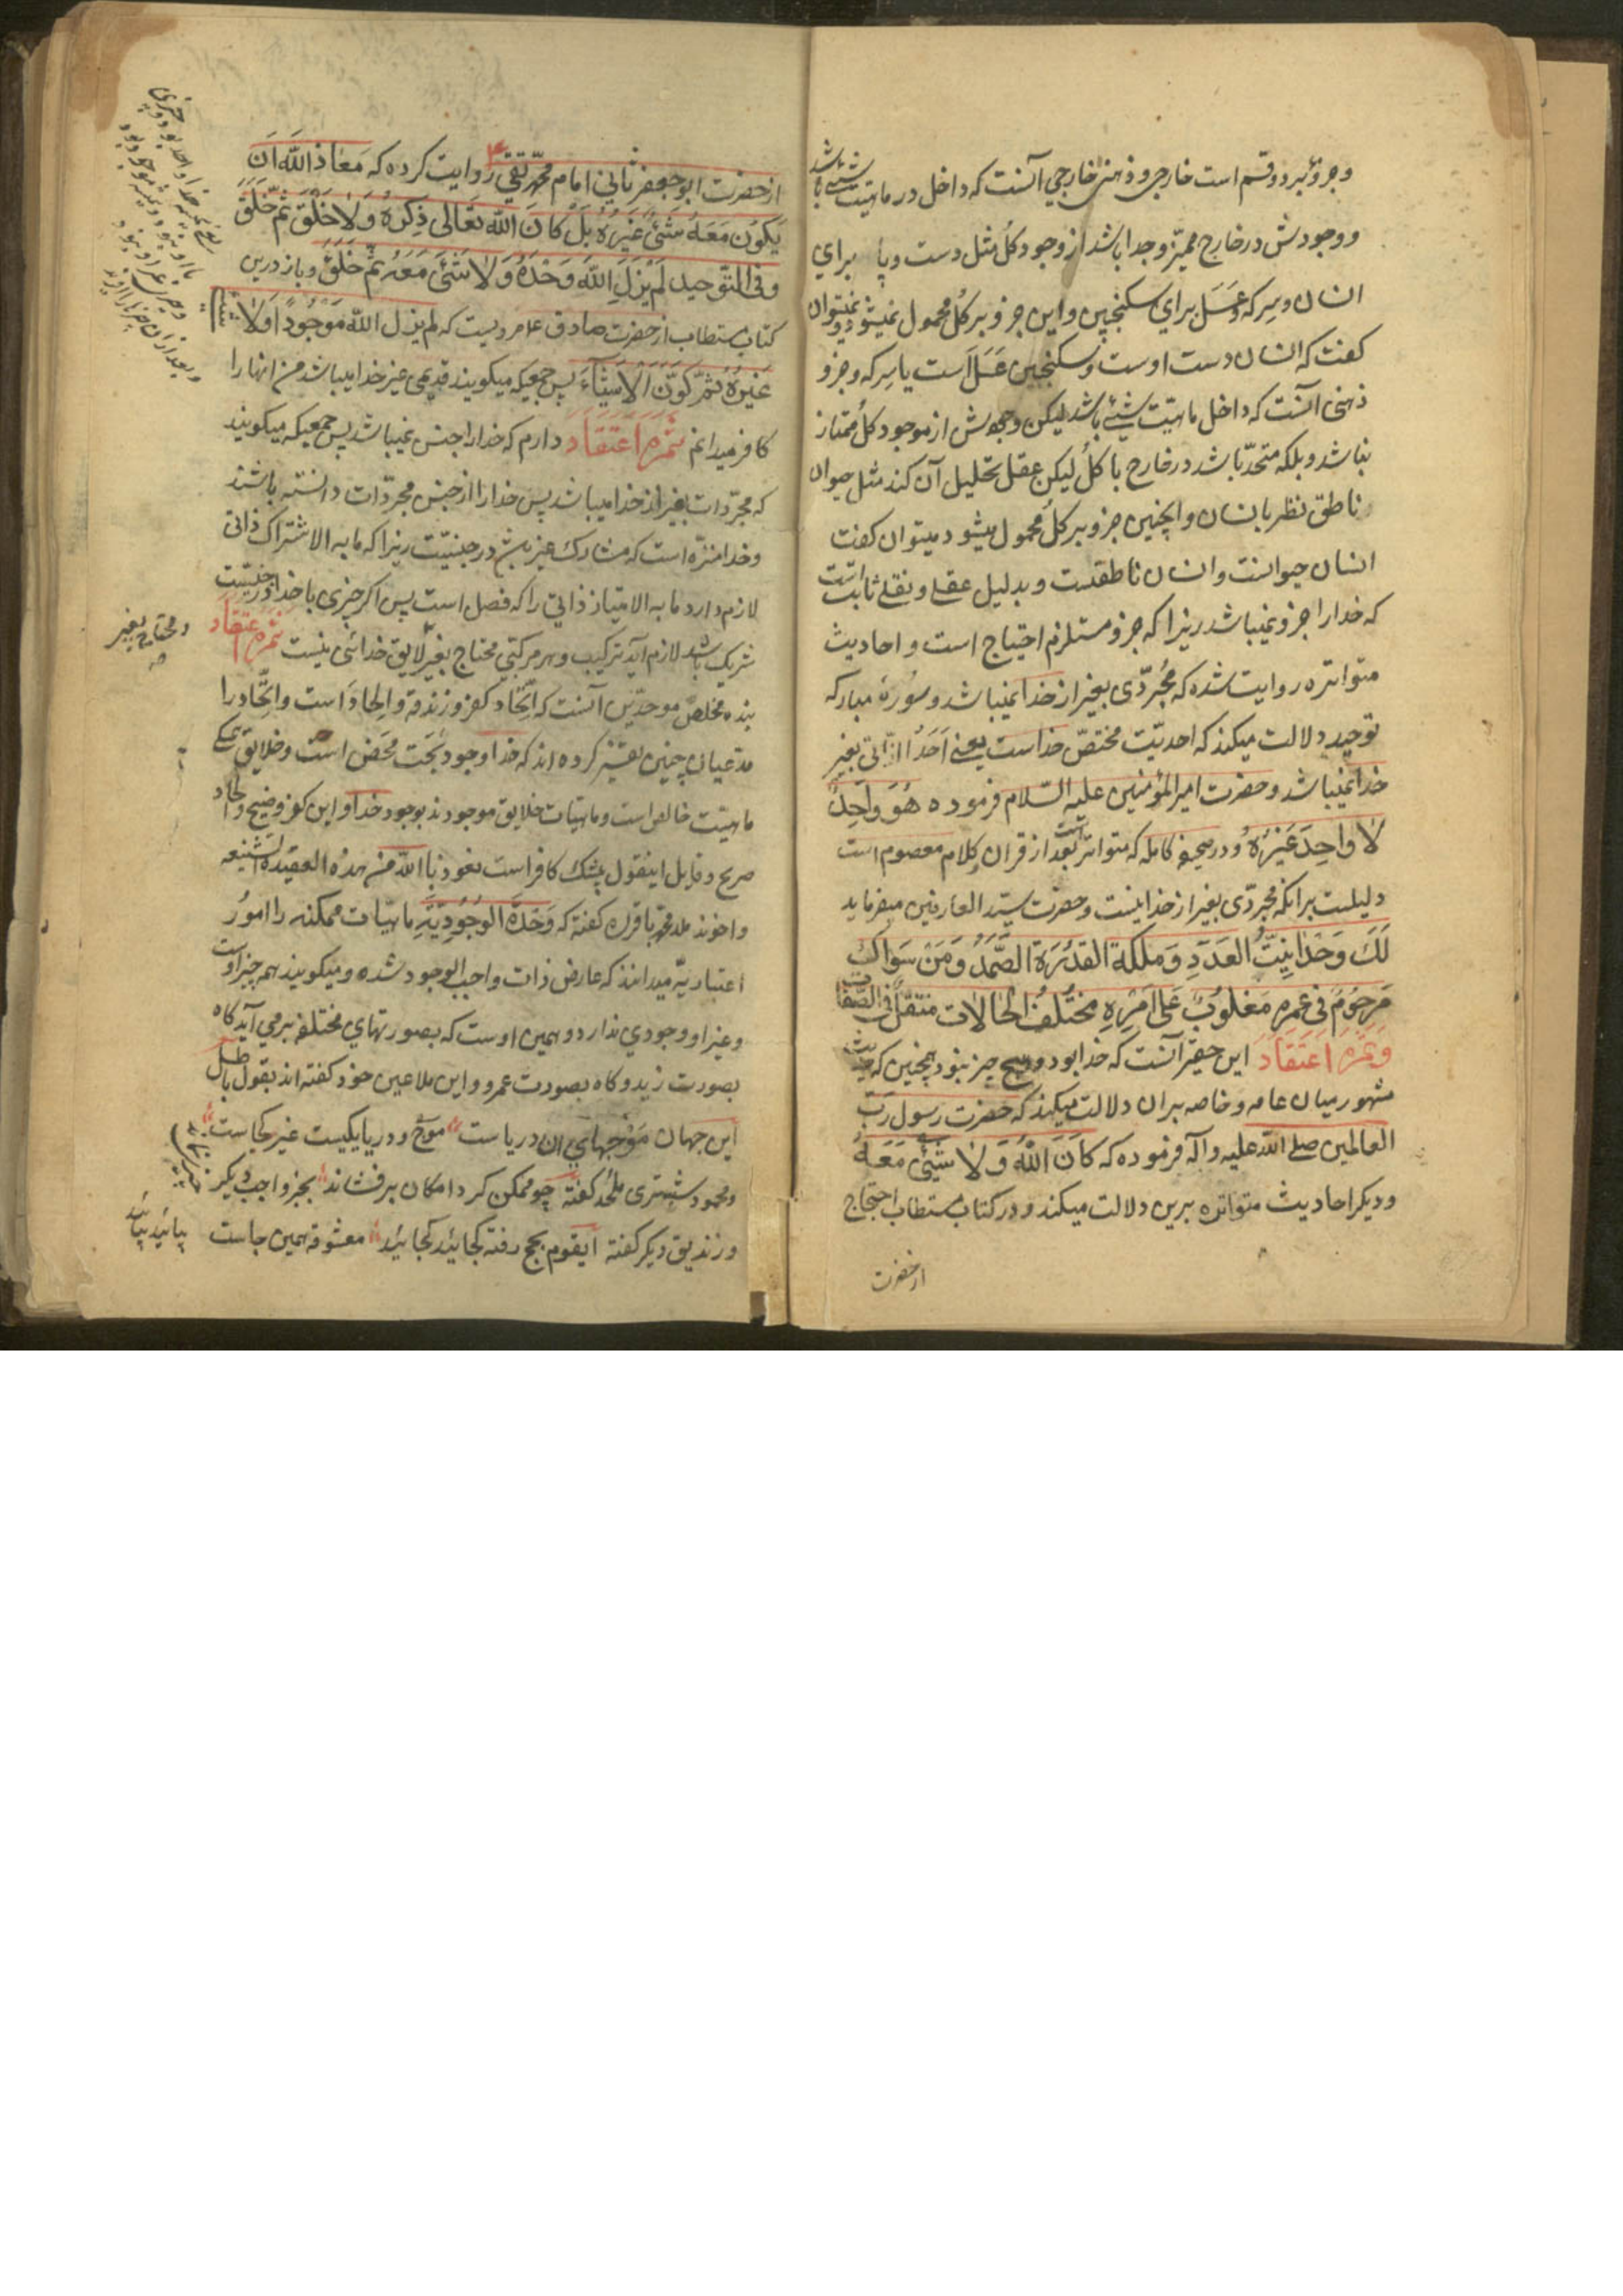 وجزو بر دو قسم است خارجی و ذهنی خارجی آنست که داخل در ماهیت شیئی باشد
و وجودش در خارج ممیز و جدا باشد از وجود کل مثل دست و پا برای
انسان و سرکه و عسل برای سکنجبین و این جزو بر کل محمول نمیشود و نمیتوان
کفت که انسان دست اوست و سکنجبین عسل است یا سرکه و جزو
ذهنی آنست که داخل ماهیت شیئی باشد لیکن وجودش از موجود کل ممتاز
نباشد و بلکه متحد باشد در خارج با کل لیکن عقل تحلیل آن کند مثل حیوان
ناطق نظر بانسان و اینچنین جزو بر کل محمول میشود میتوان کفت
انسان حیوانست و انسان ناطقست و بدلیل عقلی و نقلی ثابت است
که خدا را جزو نمیباشد زیرا که جزو مستلزم احتیاج است و احادیث
متواتره روایت شده که مجردی بغیر از خدا نمیباشد و سوره مبارکه
توحید دلالت میکند که احدیت مختص خداست یعنی احد الذاتی بغیر
خدا نمیباشد و حضرت امیر المؤمنین علیه السلام فرموده هُوَ وَاحِدٌ
لا وَاحِدَ غَیْرُهُ و در صحیفه کامله که متواتر است بعد از قران و کلام معصوم است
دلیلست بر انکه مجردی بغیر از خدا نیست و حضرت سید العارفین میفرماید
لَکَ وَحْدانِیَّتُ العَدَدِ وَمَلَکَةُ القُدْرَةِ الصَّمَدُ وَمَنْ سَوَاکَ
مَرحُومٌ فی عمره مَغلُوبٌ عَلی اَمْرِهِ مختلف الحالات متنقل فی الصفات
وثمره اعتقاد این حقیر آنست که خدا بود و هیچ چیز نبود همچنین که حدیث
مشهور میان عامه و خاصه بران دلالت میکند که حضرت رسول رب
العالمین صلی الله علیه و آله فرموده که کانَ اللهُ وَلا شَیْئَ مَعَهُ
و دیکر احادیث متواتره برین دلالت میکند و در کتاب مستطاب احتجاج
از حضرت
از حضرت ابو جعفر ثانی امام محمد تقی ع روایت کرده که مَعاذَ اللهِ اَنْ
یَکُونَ مَعَهُ شَیْئٌ غَیْرُهُ بَلْ کانَ اللهُ تَعالی ذِکْرُهُ وَلا خَلْقَ ثُمَّ خَلَقَ
وفی التوحید لَمْ یَزَلِ اللهُ وَحْدَهُ وَلا شَیْئَ مَعَهُ ثُمَّ خَلَقَ و باز درین
کتاب مستطاب از حضرت صادق ع مرویست که لم یزل الله مَوجُوداً وَلا شَیْئَ
غَیْرُهُ ثُمَّ کَوَّنَ الاَشْیاءَ پس جمعیکه میکویند قدیمی غیر خدا میباشد من انها را
کافر میدانم ثمره اعتقاد دارم که خدا را جنس نمیباشد پس جمعیکه میکویند
که مجردات بغیر از خدا میباشد پس خدا را از جنس مجردات دانسته باشند
وخدا منزه است که مشارک غیر باشد در جنسیت زیرا که ما به الاشتراک ذاتی
لازم دارد ما به الامتیاز ذاتی را که فصل است پس اکر چیزی با خدا در جنسیت
شریک باشد لازم آید ترکیب و هر مرکبی محتاج بغیر لایق خدائی نیست ثمره اعتقاد
ومحتاج بغیر
بنده مخلص موحدین آنست که اتحاد کفر و زندقه و الحاد است و اتحاد را
مدعیان چنین تفسیر کرده اند که خدا وجود بحت محض است و خلایق همکی
ماهیت خالص است و ماهیات خلایق موجودند بوجود خدا و این کفر وضیح و الحاد
صریح و قایل اینقول بیشک کافر است نعوذ بالله من هذه العقیدة الشنیعه
و اخوند ملا محمد باقر ره کفته که وَحْدَة الوُجُودِیّه ماهیات ممکنه را امور
اعتباریه میدانند که عارض ذات واجب الوجود شده و میکویند همه چیز اوست
و غیر او وجودی ندارد و همین اوست که بصورتهای مختلفه برمی آید کاه
بصورت زید و کاه بصورت عمرو و این ملاعین خود کفته اند بقول باطل
این جهان موجهای ان دریاست موج و دریا یکیست غیر کجاست
و محمود شبستری ملحد کفته چو ممکن کرد امکان بر فشاند بجز واجب دیکر چیزی نماند
و زندیق دیکر کفته ایقوم بحج رفته کجائید کجائید معشوقه همین جاست بیائید بیائید